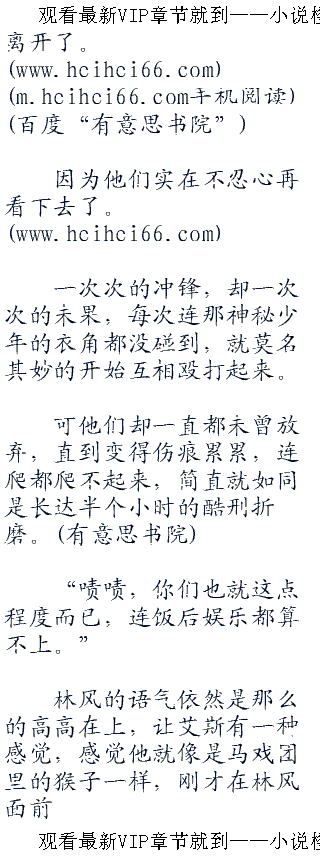 观看最新VIP章节就到——小说检
离开了。
(www.hcihci66.com)
(m.hcihci66.com手机阅读)
(百度“有意思书院”)
因为他们实在不忍心再
看下去了。
(www.hcihci66.com)
一次次的冲锋，却一次
次的未果，每次连那神秘少
年的衣角都没碰到，就莫名
其妙的开始互相殴打起来。
可他们却一直都未曾放
弃，直到变得伤痕累累，连
爬都爬不起来，简直就如同
是长达半个小时的酷刑折
磨。(有意思书院)
“啧啧，你们也就这点
程度而已，连饭后娱乐都算
不上。”
林风的语气依然是那么
的高高在上，让艾斯有一种
感觉，感觉他就像是马戏团
里的猴子一样，刚才在林风
面前
观看最新VIP章节就到——小说